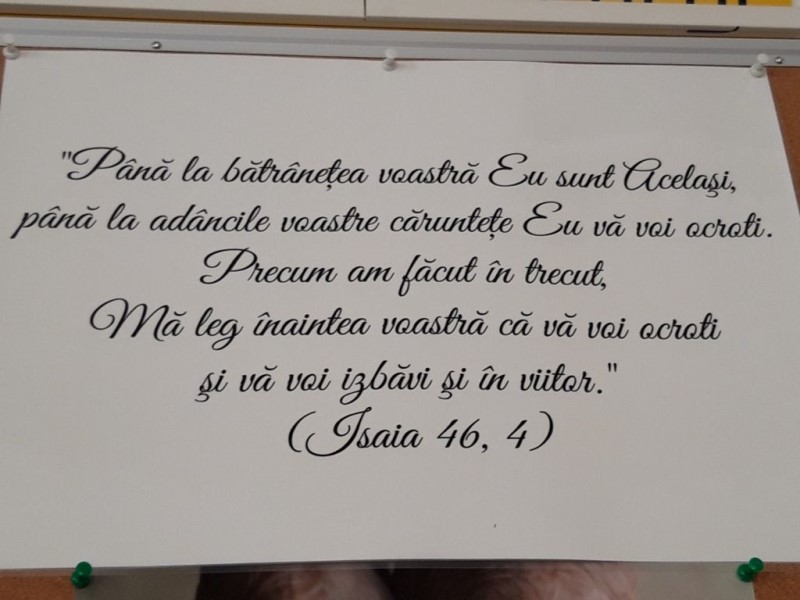 "Până la bătrânețea voastră Eu sunt Același,
până la adâncile voastre cărunteţe Eu vă voi ocroti.
Precum am făcut în trecut,
Mă leg înaintea voastră că vă voi ocroti
şi vă voi izbăvi şi în viitor."
(Isaia 46, 4)